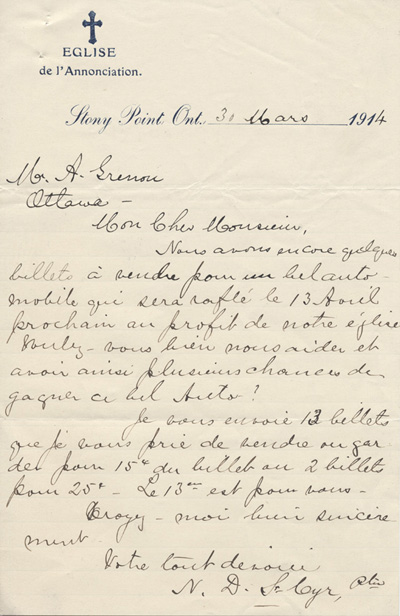 EGLISE
de l'Annonciation.
Stony Point Ont., 30 Mars 1914
Mr. A. Grenon
Ottawa –
Mon Cher Monsieur,
Nous avons encore quelques
billets à vendre pour un bel auto-
mobile qui sera raflé le 13 Avril
prochain au profit de notre église
Voulez-vous bien nous aider et
avoir ainsi plusieurs chances de
gagner ce bel Auto?
Je vous envoie 13 billets
que je vous prie de vendre ou gar
der pour 15¢ du billet ou 2 billets
pour 25¢ – Le 13me est pour vous –
Croyez-moi bien sincère
ment
Votre tout dévoué
N. D. St Cyr, Ptre